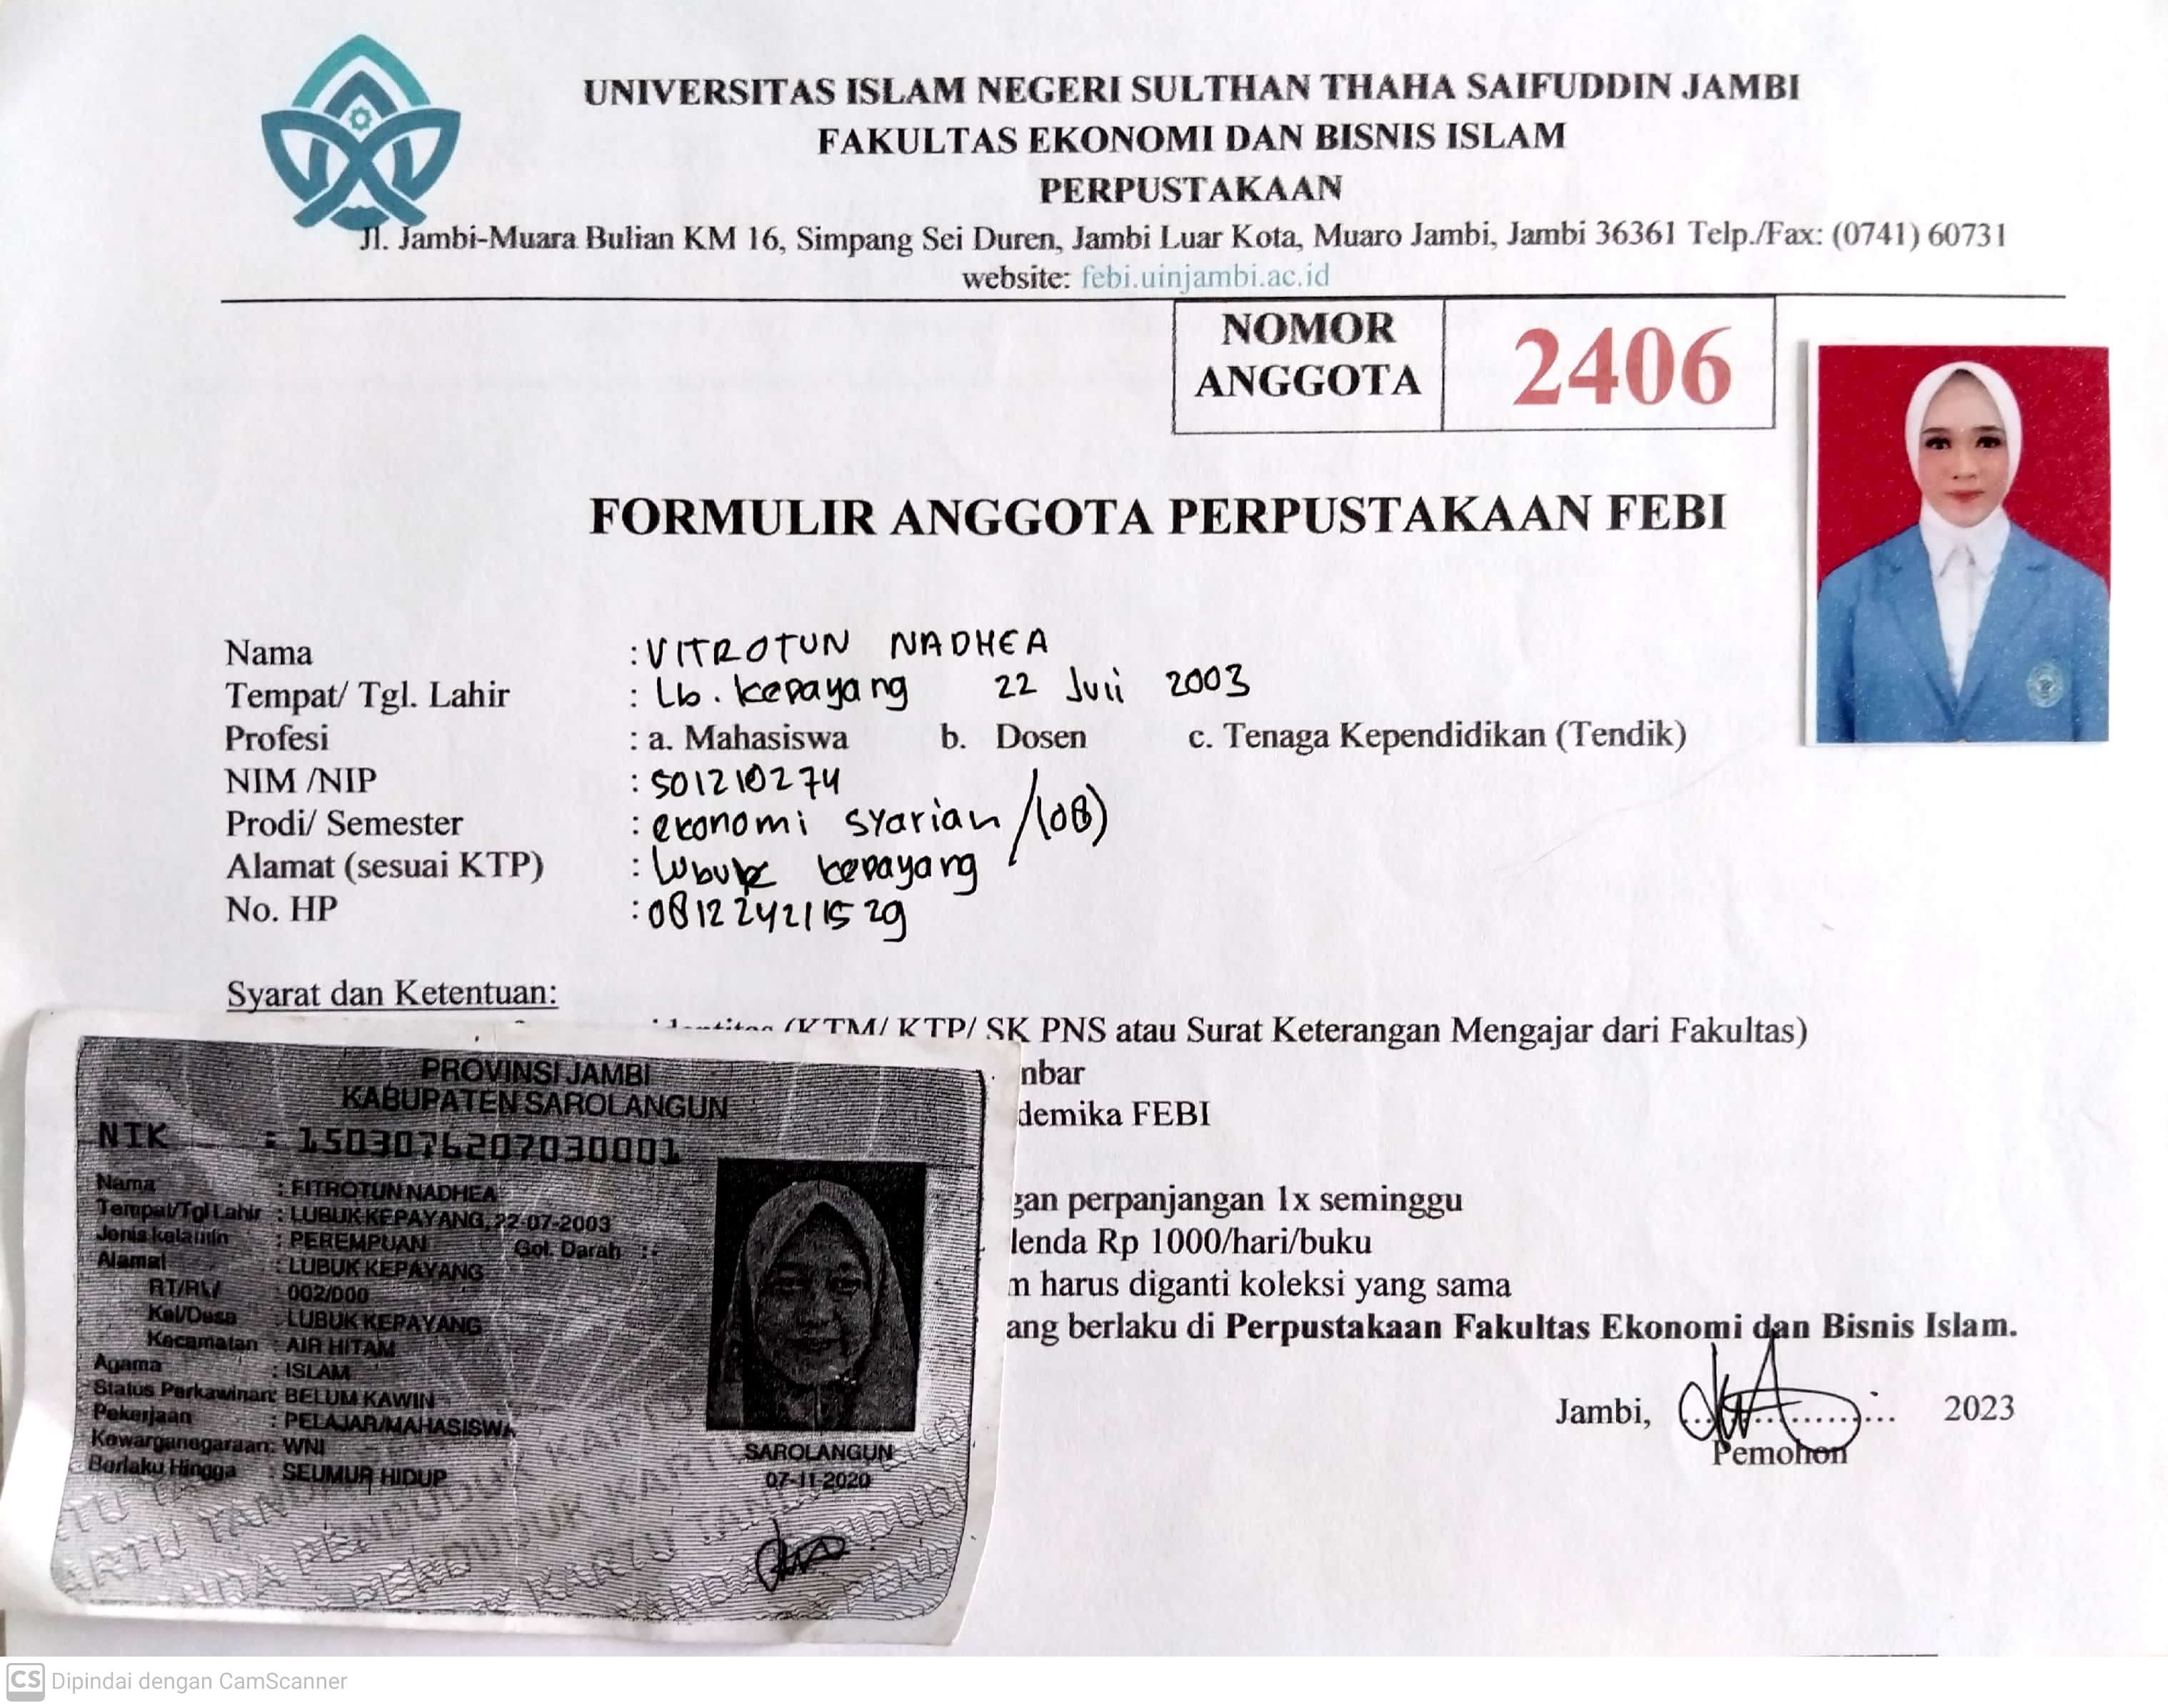 UNIVERSITAS ISLAM NEGERI SULTHAN THAHA SAIFUDDIN JAMBI
FAKULTAS EKONOMI DAN BISNIS ISLAM
PERPUSTAKAAN
Jl. Jambi-Muara Bulian KM 16, Simpang Sei Duren, Jambi Luar Kota, Muaro Jambi, Jambi 36361 Telp./Fax: (0741) 60731
website: febi.uinjambi.ac.id
NOMOR ANGGOTA 2406
FORMULIR ANGGOTA PERPUSTAKAAN FEBI
Nama : VITROTUN NADHEA
Tempat/ Tgl. Lahir : Lb. kepayang 22 Juli 2003
Profesi : a. Mahasiswa b. Dosen c. Tenaga Kependidikan (Tendik)
NIM /NIP : 501210274
Prodi/ Semester : ekonomi syariah /(08)
Alamat (sesuai KTP) : lubuk kepayang
No. HP : 081224211529
Syarat dan Ketentuan:
(KTM/ KTP/ SK PNS atau Surat Keterangan Mengajar dari Fakultas)
nbar
demika FEBI
gan perpanjangan 1x seminggu
lenda Rp 1000/hari/buku
m harus diganti koleksi yang sama
ang berlaku di Perpustakaan Fakultas Ekonomi dan Bisnis Islam.
Jambi, .................. 2023
Pemohon
PROVINSI JAMBI
KABUPATEN SAROLANGUN
NIK : 1503076207030001
Nama : FITROTUN NADHEA
Tempat/Tgl Lahir : LUBUK KEPAYANG, 22-07-2003
Jenis kelamin : PEREMPUAN Gol. Darah : -
Alamat : LUBUK KEPAYANG
RT/RW : 002/000
Kel/Desa : LUBUK KEPAYANG
Kecamatan : AIR HITAM
Agama : ISLAM
Status Perkawinan: BELUM KAWIN
Pekerjaan : PELAJAR/MAHASISWA
Kewarganegaraan: WNI
Berlaku Hingga : SEUMUR HIDUP
SAROLANGUN
07-11-2020
CS Dipindai dengan CamScanner